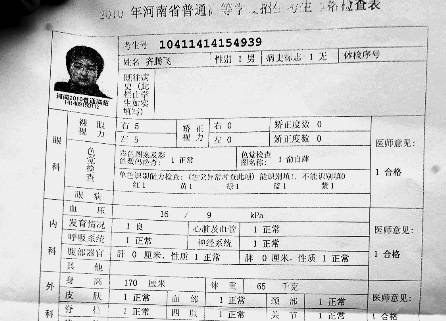 2010 年河南省普通高等学校招生考生体格检查表
考生号 10411414154939
姓名 齐腾飞 性别 1 男 病史标志 1 无 体检序号
既往病史(此栏由学生如实填写)
河南2010普通高招
眼科
裸眼视力 右 5 矫正视力 右 0 矫正度数 0
左 5 左 0 矫正度数 0
医师意见:
色觉检查 彩色图案及彩色数码检查: 1 正常 色觉检查图名称: 1 俞自萍
1 合格
单色识别能力检查:(色觉异常者查此项)能识别填1,不能识别填0
红 1 黄 1 绿 1 蓝 1 紫 1
眼病
内科
血压 16 / 9 kPa
医师意见:
发育情况 1 良 心脏及血管 1 正常
呼吸系统 1 正常 神经系统 1 正常
1 合格
腹部器官 肝 0 厘米,性质 1 正常 脾 0 厘米,性质 1 正常
其他
外
身高 170 厘米 体重 65 千克
医师意见:
皮肤 1 正常 面部 1 正常 颈部 1 正常
脊柱 1 正常 四肢 1 正常 关节 1 正常
1 合格